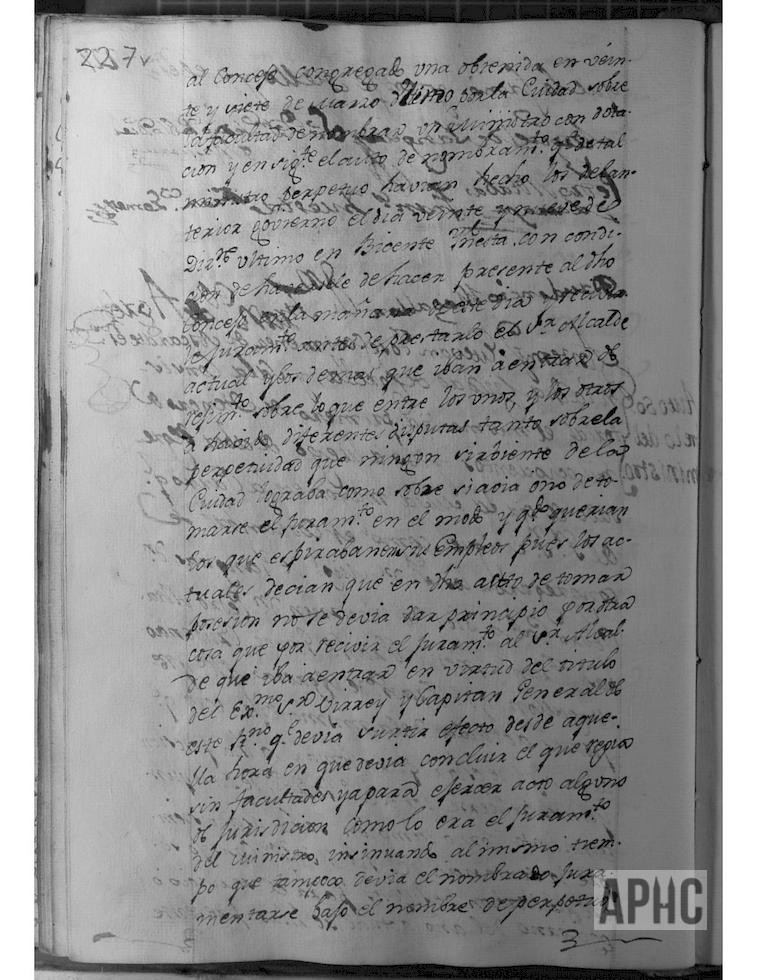 227v
al Concejo congregado una obtenida en vein-
te y siete de Marzo ultimo por la Ciudad sobre
la facultad de nombrar un Ministro con dota-
cion y en sigte el auto de nombramto y de tal
ministro perpetuo havian hecho los del an-
terior govierno el dia veinte y nueve de
Dizre ultimo en Bicente Yriesta, con condi-
cion de haversele de hacer presente al dho
Concejo en la mañana de este dia y recivir-
le juramto antes de prestarlo el Sr Alcalde
actual y los demas que iban a entrar de
regimto sobre lo que entre los unos, y los otros
a havido diferentes disputas tanto sobre la
perpetuidad que ningon sirbiente de la
Ciudad lograba como sobre si avia o no de to-
marse el juramto en el modo y qe querian
los que espiraban en sus Empleos pues los ac-
tuales decian que en dho acto de tomar
posesion no se devia dar principio por otra
cosa que por recivir el juramto al Sr Alcal-
de que iba a entrar en virtud del titulo
del Exmo Sr Virrey y Capitan General de
este Rno qe devia surtir efecto desde aque-
lla hora en que devia concluir el que regia
sin facultades ya para egercer acto alguno
de jurisdicion como lo era el juramto
del ministro, insinuando al mismo tiem-
po que tampoco devia el nombrado jura-
mentarse bajo el nombre de perpetuo
APHC